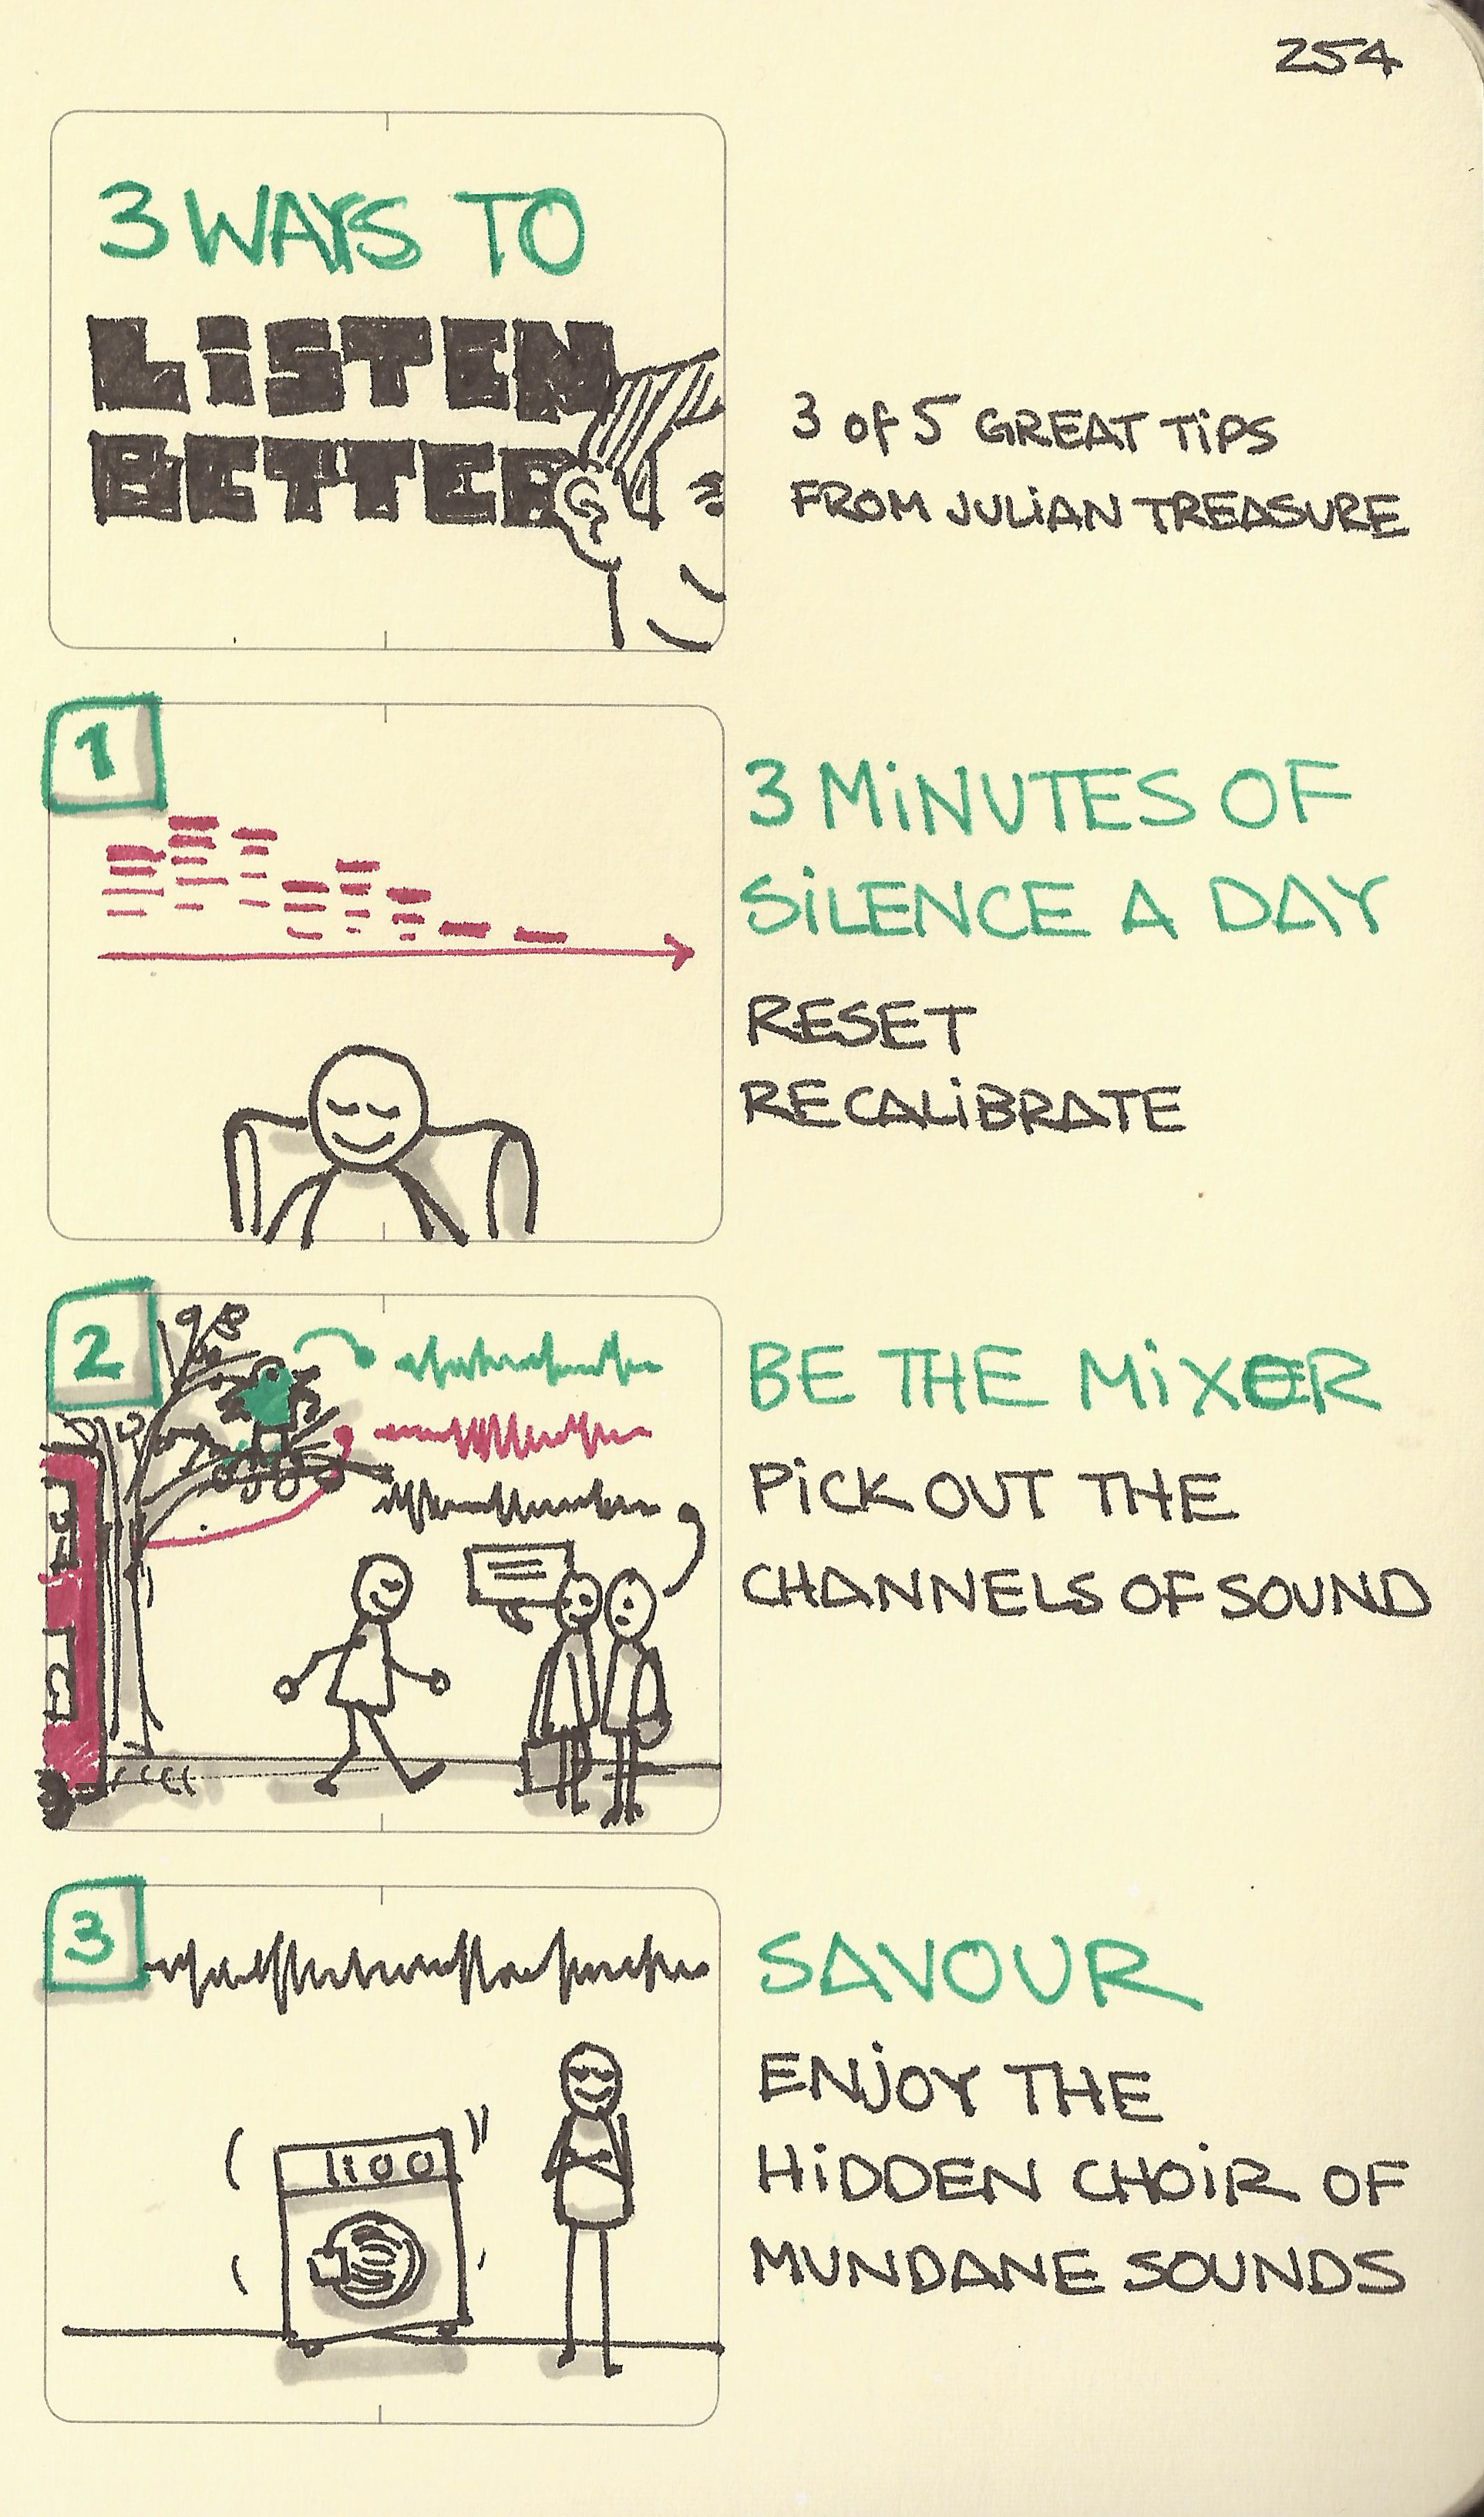 254
3 WAYS TO
LiSTEN
BETTER
3 of 5 GREAT TiPS
FROM JULiAN TREASURE
1
3 MiNUTES OF
SiLENCE A DAY
RESET
RECALiBRATE
2
BE THE MiXER
PiCK OUT THE
CHANNELS OF SOUND
3
SAVOUR
ENJOY THE
HiDDEN CHOiR OF
MUNDANE SOUNDS